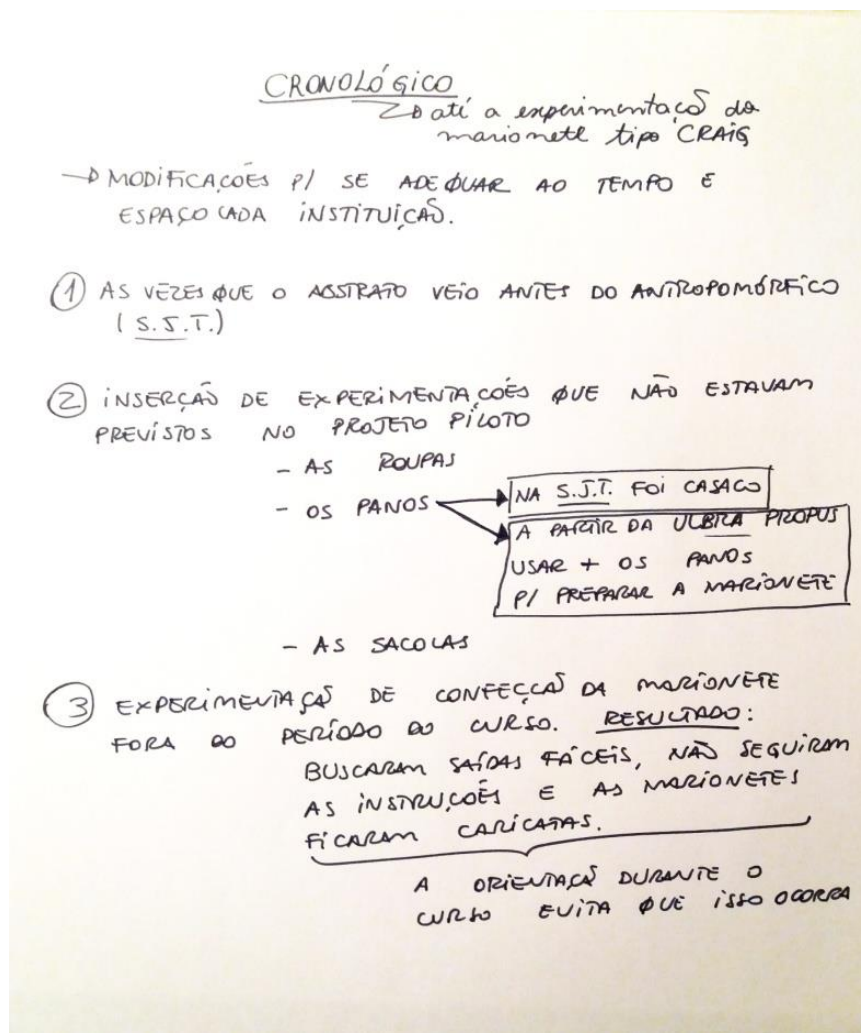 CRONOLÓGICO
até a experimentaçõ da
marionete tipo CRAIG
MODIFICAÇÕES P/ SE ADEQUAR AO TEMPO E
ESPAÇO CADA INSTITUIÇÃO.
1 AS VEZES QUE O ABSTRATO VEIO ANTES DO ANTROPOMÓRFICO
(S.J.T.)
2 INSERÇÃO DE EXPERIMENTAÇÕES QUE NÃO ESTAVAM
PREVISTOS NO PROJETO PILOTO
- AS ROUPAS
- OS PANOS
NA S.J.T. FOI CASACO
A PARTIR DA ULBRA PROPUS
USAR + OS PANOS
P/ PREPARAR A MARIONETE
- AS SACOLAS
3 EXPERIMENTAÇÃO DE CONFECÇÃO DA MARIONETE
FORA DO PERÍODO DO CURSO. RESULTADO:
BUSCARAM SAÍDAS FÁCEIS, NÃO SEGUIRAM
AS INSTRUÇÕES E AS MARIONETES
FICARAM CARICATAS.
A ORIENTAÇÃO DURANTE O
CURSO EVITA QUE ISSO OCORRA